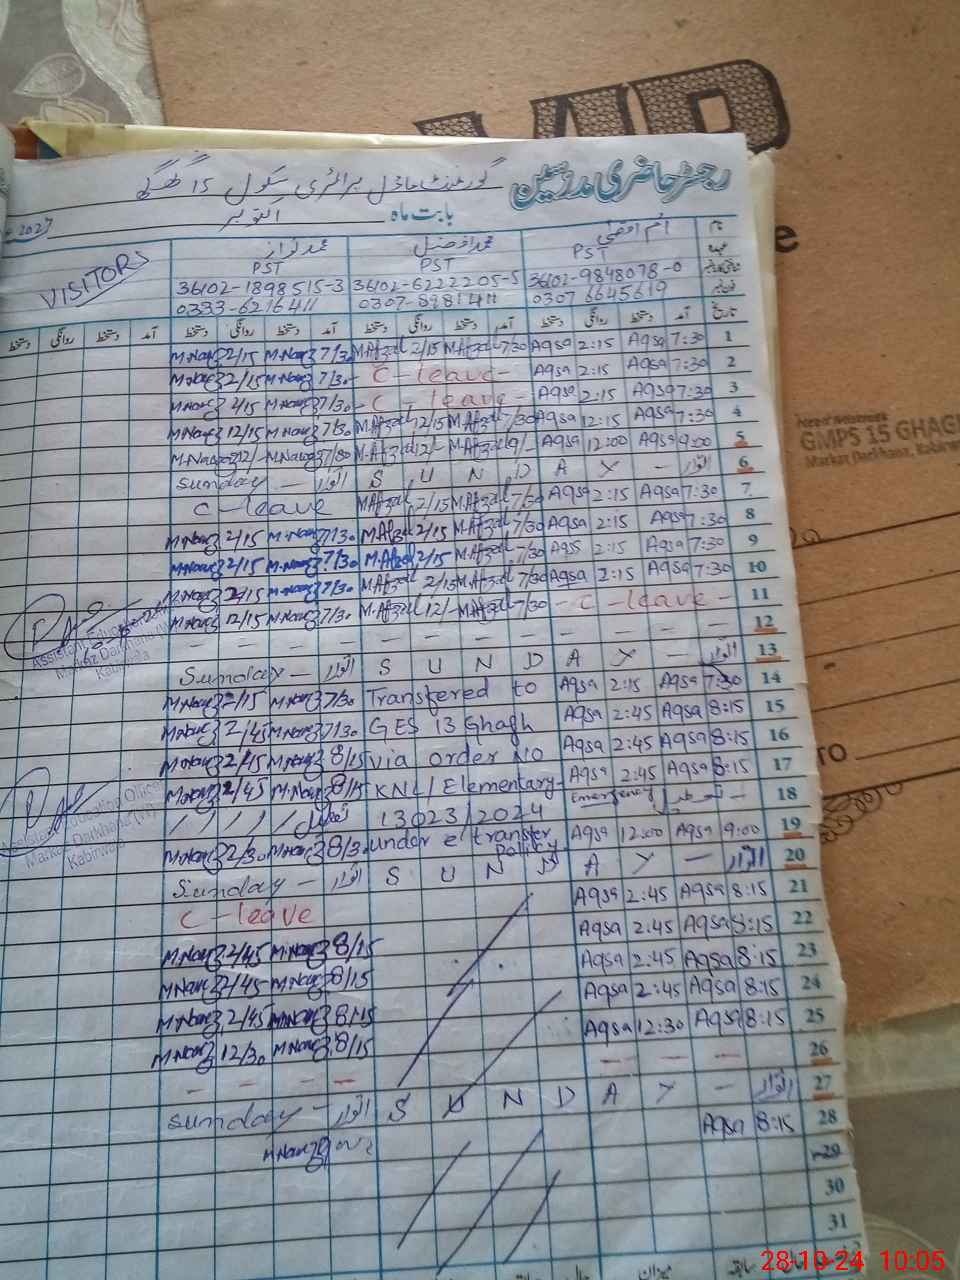 رجسٹر حاضری مدرسین گورنمنٹ ماڈل پرائمری سکول 15 گھگھ
بابت ماہ اکتوبر
نام ام اقصیٰ محمد افضل محمد نواز
عہدہ PST PST PST VISITORS
36102-9848078-0 36102-6222205-5 36102-1898515-3
فون نمبر 0307 6645619 0307-8981411 0333-6216411
تاریخ آمد دستخط روانگی دستخط آمد دستخط روانگی دستخط آمد دستخط روانگی دستخط آمد دستخط روانگی دستخط
1 7:30 Aqsa 2:15 Aqsa 7/30 M.Afzal 2/15 M.Afzal 7/30 M.Nawaz 2/15 M.Nawaz
2 7:30 Aqsa 2:15 Aqsa - C - leave - 7/30 M.Nawaz 2/15 M.Nawaz
3 7:30 Aqsa 2:15 Aqsa - C - leave - 7/30 M.Nawaz 2/15 M.Nawaz
4 7:30 Aqsa 12:15 Aqsa 7/30 M.Afzal 12/15 M.Afzal 7/30 M.Nawaz 12/15 M.Nawaz
5 9:00 Aqsa 12:00 Aqsa 9/- M.Afzal 12/- M.Afzal M.Nawaz 12/- M.Nawaz
6 اتوار - S U N D A Y اتوار - Sunday
7 7:30 Aqsa 2:15 Aqsa 7/30 M.Afzal 2/15 M.Afzal C - leave
8 7:30 Aqsa 2:15 Aqsa 7/30 M.Afzal 2/15 M.Afzal 7/30 M.Nawaz 2/15 M.Nawaz
9 7:30 Aqsa 2:15 Aqsa 7/30 M.Afzal 2/15 M.Afzal 7/30 M.Nawaz 2/15 M.Nawaz
10 7:30 Aqsa 2:15 Aqsa 7/30 M.Afzal 2/15 M.Afzal 7/30 M.Nawaz 2/15 M.Nawaz
11 - C - leave - 7/30 M.Afzal 12/- M.Afzal 7/30 M.Nawaz 12/15 M.Nawaz
12 - - - - - - - - - - - -
13 اتوار - S U N D A Y اتوار - Sunday
14 7:30 Aqsa 2:15 Aqsa Transfered to 7/30 M.Nawaz 2/15 M.Nawaz
15 8:15 Aqsa 2:45 Aqsa GES 13 Ghagh 7/30 M.Nawaz 2/45 M.Nawaz
16 8:15 Aqsa 2:45 Aqsa via order NO 8/15 M.Nawaz 2/45 M.Nawaz
17 8:15 Aqsa 2:45 Aqsa KNL/Elementary- 8/15 M.Nawaz 2/45 M.Nawaz
18 Emergency تعطیل - 13023/2024 تعطیل / / / /
19 9:00 Aqsa 12:00 Aqsa under e transfer Policy 8/30 M.Nawaz 2/30 M.Nawaz
20 اتوار - S U N D A Y اتوار - Sunday
21 8:15 Aqsa 2:45 Aqsa C - leave
22 8:15 Aqsa 2:45 Aqsa 8/15 M.Nawaz 2/45 M.Nawaz
23 8:15 Aqsa 2:45 Aqsa 8/15 M.Nawaz 2/45 M.Nawaz
24 8:15 Aqsa 2:45 Aqsa 8/15 M.Nawaz 2/45 M.Nawaz
25 8:15 Aqsa 12:30 Aqsa 8/15 M.Nawaz 12/30 M.Nawaz
26 - - - - - - -
27 اتوار - S U N D A Y اتوار - Sunday
28 8:15 Aqsa
29 M.Nawaz
30
31
Assistant Education Officer
Markaz Darkhana (W)
Kabirwala
Assistant Education Officer
Markaz Darkhana (W)
Kabirwala
GMPS 15 GHAG
Markaz Darkhana, Kabirw
TO
28-10-24 10:05